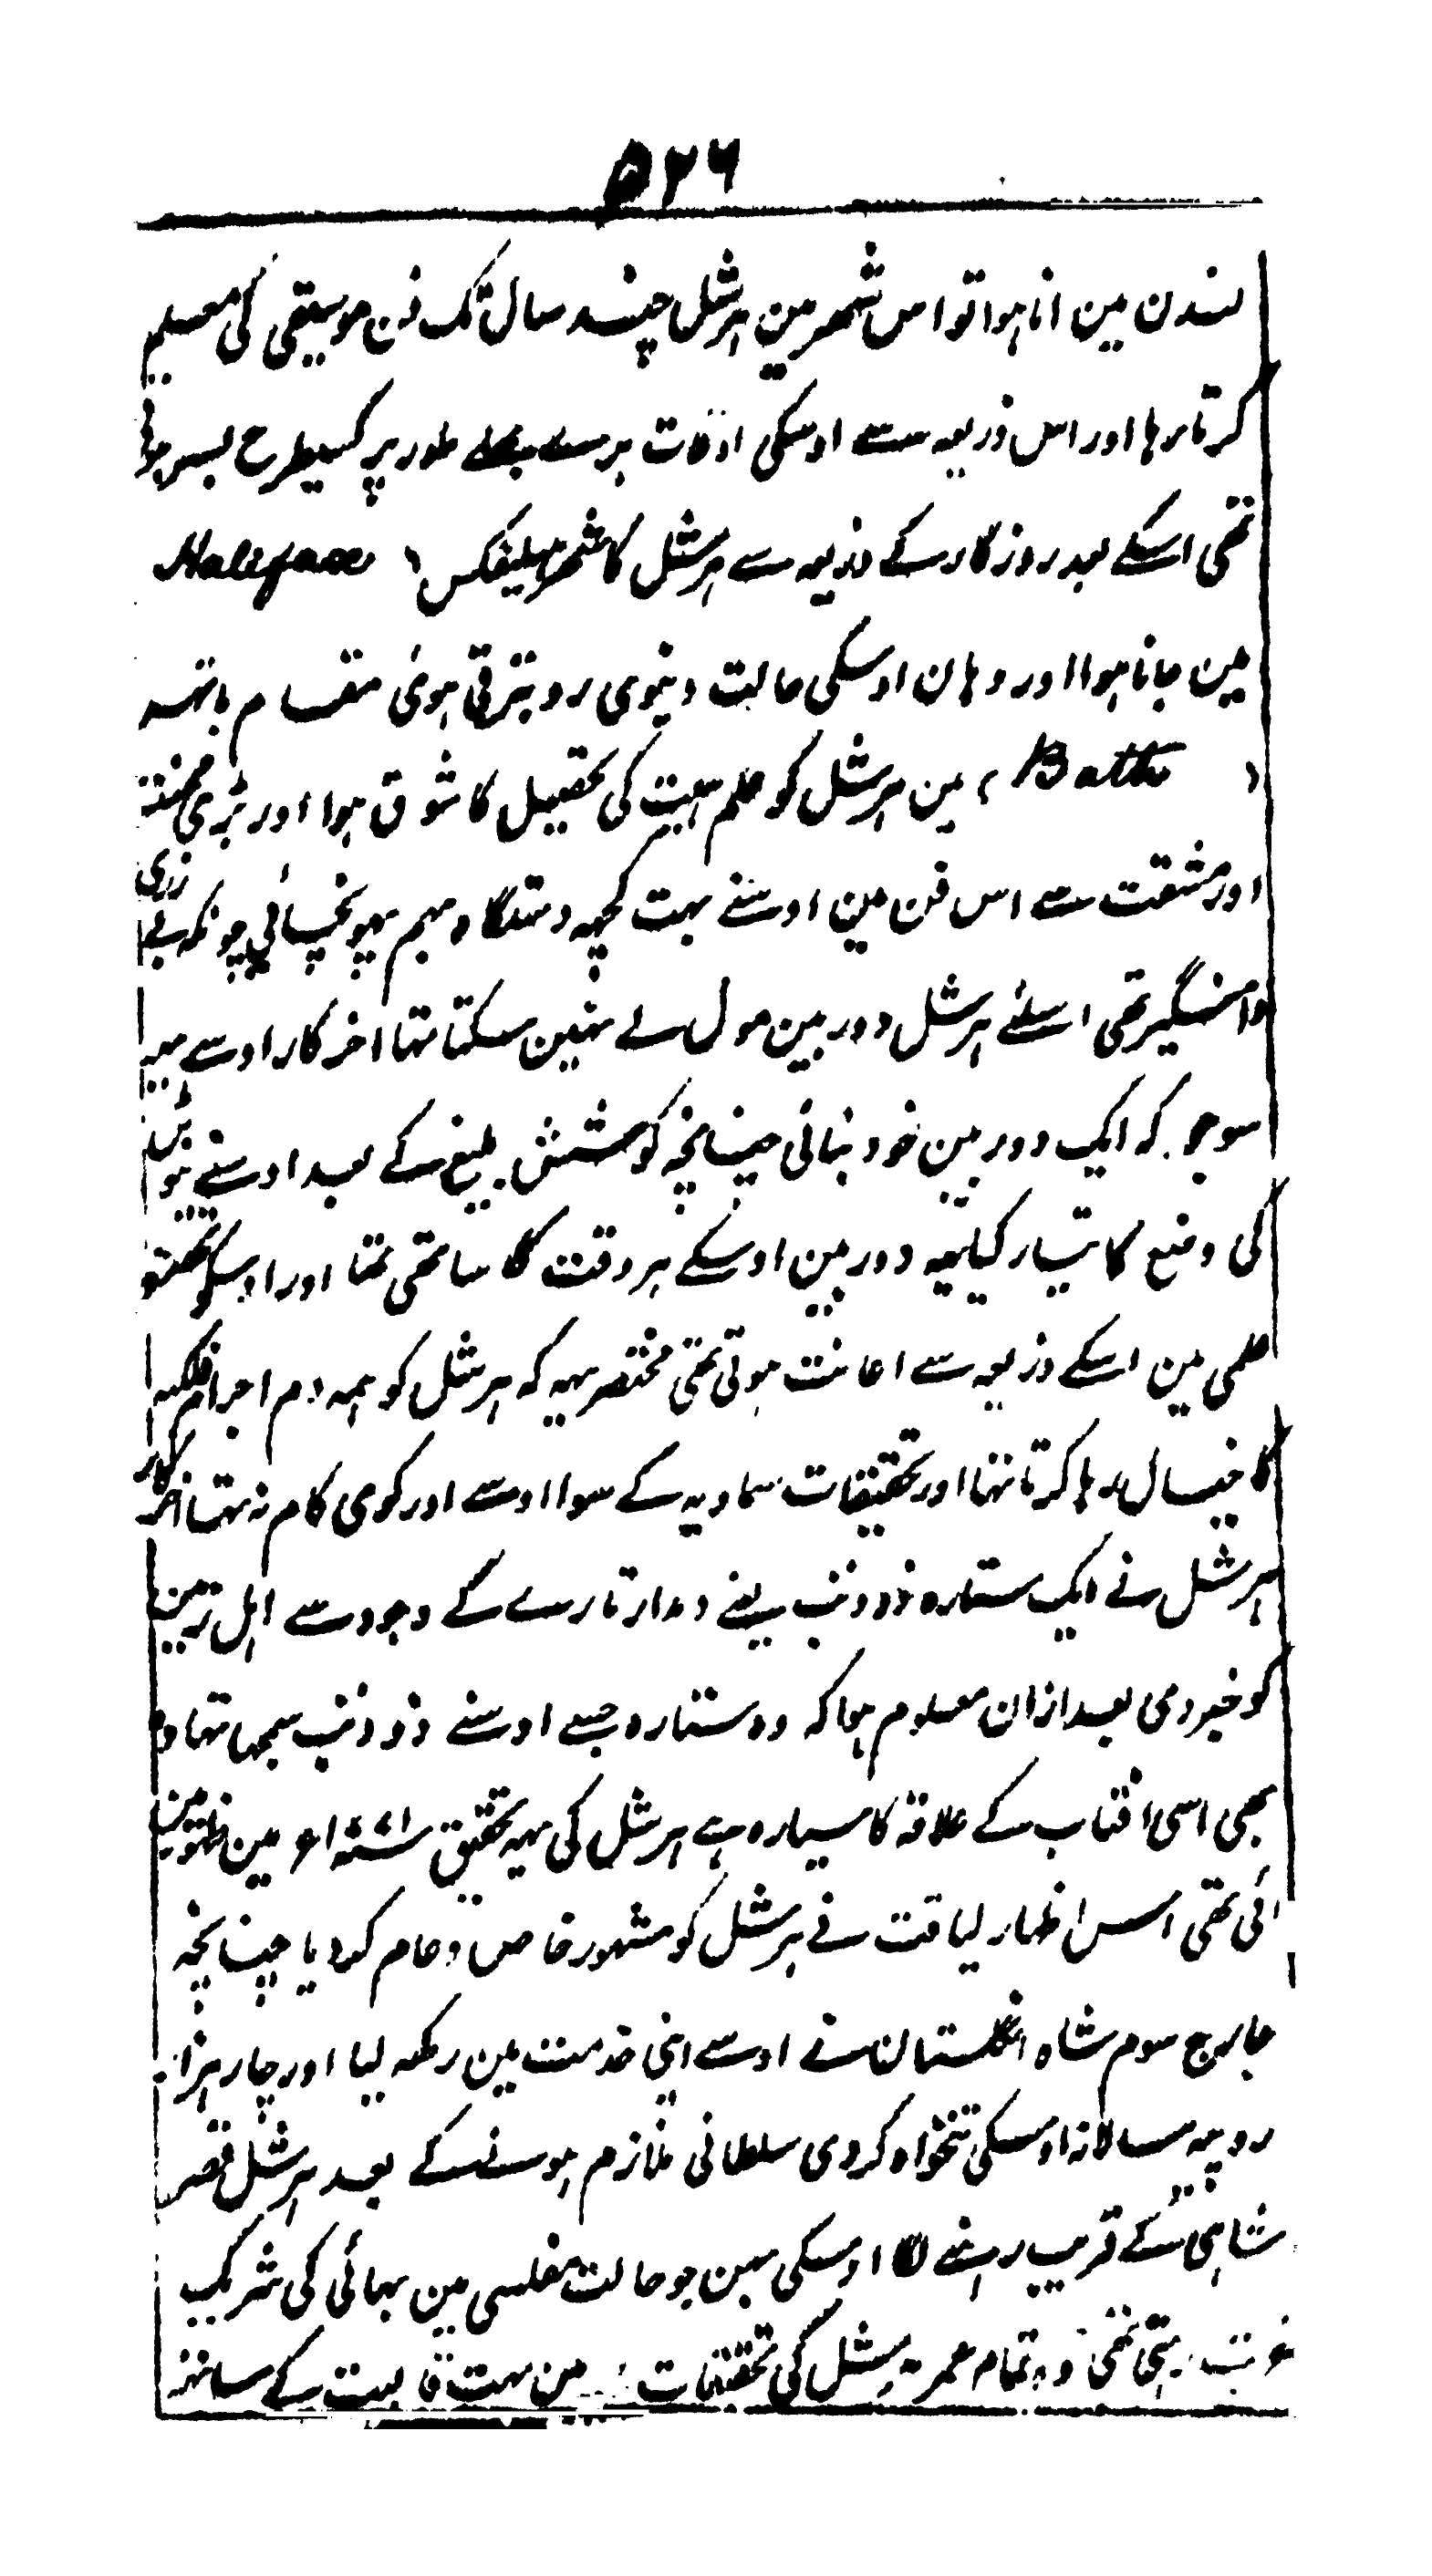 ۵۲۶
لندن مین انا ہوا تو اس شھر مین ہرشل چند سال تک فن موسیقی کی تعلیم
کرتا رہا اور اس ذریعہ سے اوسکی اوقات برے بھلے طور پر کسیطرح بسر ہوتی
تھی اسکے بعد روزگار کے ذریعہ سے ہرشل کا شھر ہیلیفکس ( Halifax
مین جانا ہوا اور وہان اوسکی حالت دنیوی رو بترقی ہوئی مقام باتھہ
( Bath ) مین ہرشل کو علم ہیئت کی تحصیل کا شوق ہوا اور بڑی محنت
اور مشقت سے اس فن مین اوسنے بہت کچھہ دستگاہ بہم پہونچائی چونکہ بی زری
دامنگیر تھی اسلئے ہرشل دوربین مول لے نہین سکتا تھا اخر کار اوسے یہہ
سوجہ کہ ایک دوربین خود بنائی چنانچہ کوشش بلیغ کے بعد اوسنے نیوٹن
کی وضع کا تیار کیا یہہ دوربین اوسکے ہر وقت کا ساتھی تھا اور اوسکو تحقیق
علمی مین اسکے ذریعہ سے اعانت ہوتی تھی مختصر یہہ کہ ہرشل کو ہمہ دم اجرام فلکیہ
کا خیال رہا کرتا تھا اور تحقیقات سماویہ کے سوا اوسے اور کوی کام نہ تھا اخر کار
ہرشل نے ایک ستارہ ذو ذنب یعنے دمدار تارے کے وجود سے اہل زمین
کو خبر دی بعد ازان معلوم ہوا کہ وہ ستارہ جسے اوسنے ذو ذنب سمجھا تھا وہ
بھی اسی افتاب کے علاقہ کا سیارہ ہے ہرشل کی یہہ تحقیق ۱۷۸۱ء مین ظہور مین
ائی تھی اس اظہار لیاقت نے ہرشل کو مشہور خاص و عام کردیا چنانچہ
جارج سوم شاہ انگلستان نے اوسے اپنی خدمت مین رکھہ لیا اور چار ہزار
روپیہ سالانہ اوسکی تنخواہ کردی سلطانی ملازم ہونے کے بعد ہرشل قصر
شاہی کے قریب رہنے لگا اوسکی بہن جو حالت مفلسی مین بھائی کی شریک
رہتی تھی وہ تمام عمر ہرشل کی تحقیقات مین بہت قابلیت کے ساتھہ